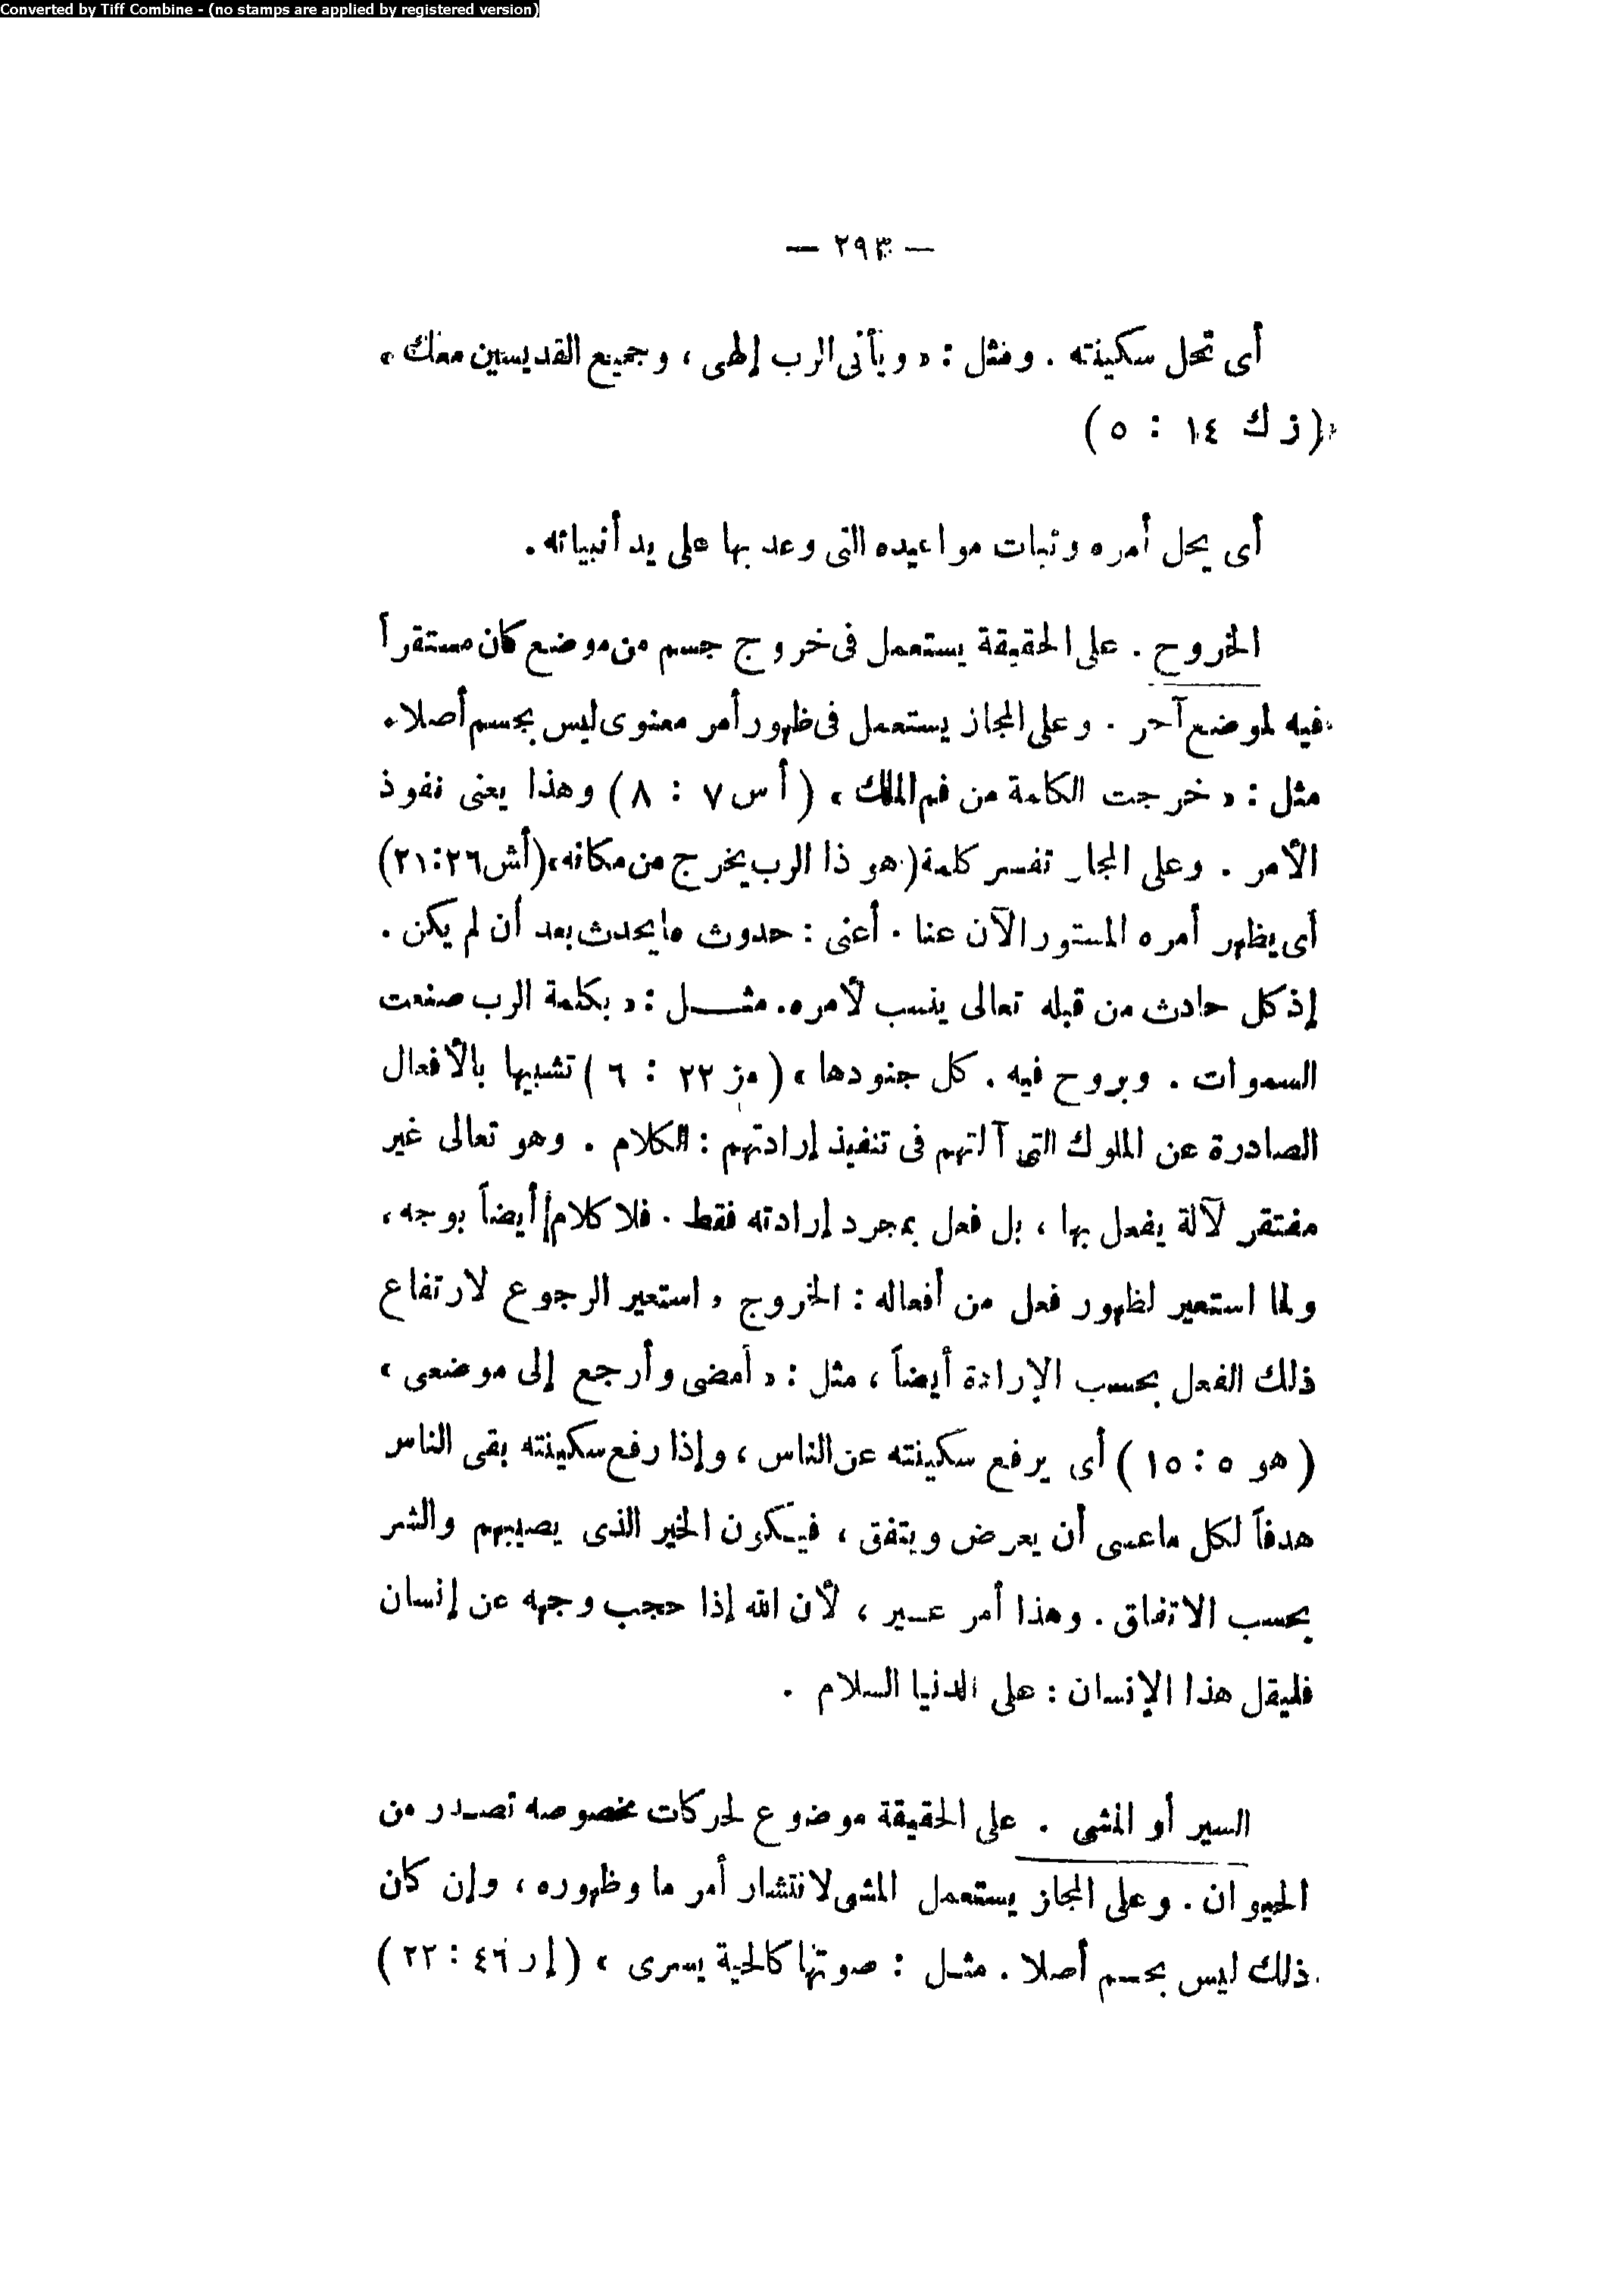 Converted by Tiff Combine - (no stamps are applied by registered version)
— ٢٩٣ —
أى تحل سكينته . ومثل : « ويأتى الرب إلهى ، وجميع القديسين معك »
(زك ١٤ : ٥)
أى يحل أمره وثبات مواعيده التى وعد بها على يد أنبيائه .
الخروج . على الحقيقة يستعمل فى خروج جسم من موضع كان مستقرأ
فيه لموضع آخر . وعلى المجاز يستعمل فى ظهور أمر معنوى ليس بجسم أصلا .
مثل : « خرجت الكلمة من فم الملك » ( أس ٧ : ٨ ) وهذا يعنى نفوذ
الأمر . وعلى المجاز تفسر كلمة (هو ذا الرب يخرج من مكانه» (أش ٢٦:٢١)
أى يظهر أمره المستور الآن عنا . أعنى : حدوث ما يحدث بعد أن لم يكن .
إذ كل حادث من قبله تعالى ينسب لأمره . مثــل : « بكلمة الرب صنعت
السموات . وبروح فيه . كل جنودها » ( مز ٢٢ : ٦ ) تشبيها بالأفعال
الصادرة عن الملوك التى آلتهم فى تنفيذ إرادتهم : الكلام . وهو تعالى غير
مفتقر لآلة يفعل بها ، بل فعل بمجرد إرادته فقط . فلا كلام أيضاً بوجه ،
ولما استعير لظهور فعل من أفعاله : الخروج ، استعير الرجوع لارتفاع
ذلك الفعل بحسب الإرادة أيضاً ، مثل : « أمضى وأرجع إلى موضعى »
( هو ٥ : ١٥ ) أى يرفع سكينته عن الناس ، وإذا رفع سكينته بقى الناس
هدفاً لكل ماعسى أن يعرض ويتفق ، فيكون الخير الذى يصيبهم والشر
بحسب الاتفاق . وهذا أمر عسير ، لأن الله إذا حجب وجهه عن إنسان
فليقل هذا الإنسان : على الدنيا السلام .
السير أو المشى . على الحقيقة موضوع لحركات مخصوصه تصـدر من
الحيوان . وعلى المجاز يستعمل المشى لانتشار أمر ما وظهوره ، وإن كان
ذلك ليس بجسم أصلا . مثـل : صوتها كالحية يسرى » ( إر ٤٦ : ٢٢ )